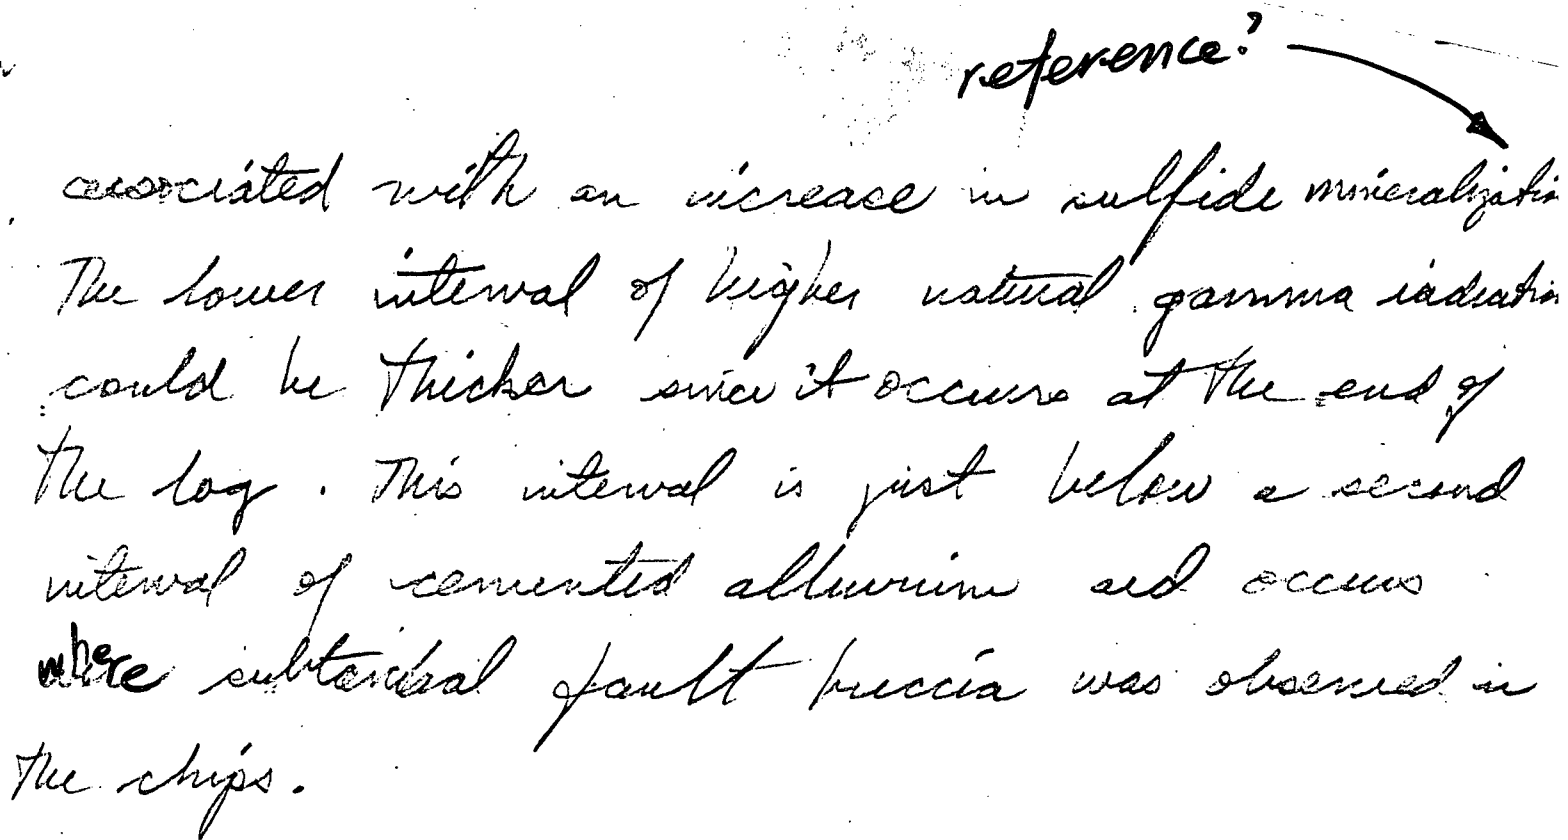 reference?
associated with an increase in sulfide mineralizatio
The lower interval of higher natural gamma radiatio
could be thicker since it occurs at the end of
the log. This interval is just below a second
interval of cemented alluvium and occurs
where subtantial fault breccia was observed in
the chips.